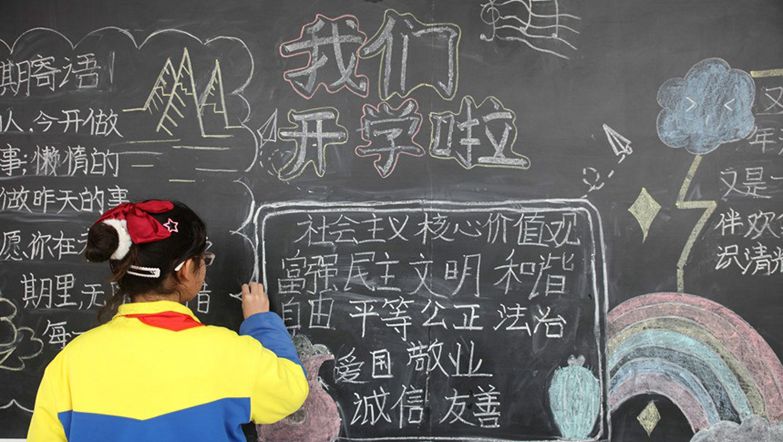 期寄语
人,今开做
事;懒惰的
做昨天的事
愿你在
期里,无
每一
我们
开学啦
社会主义核心价值观
富强民主文明和谐
自由平等公正法治
爱国敬业
诚信友善
年
又是
伴欢
识清